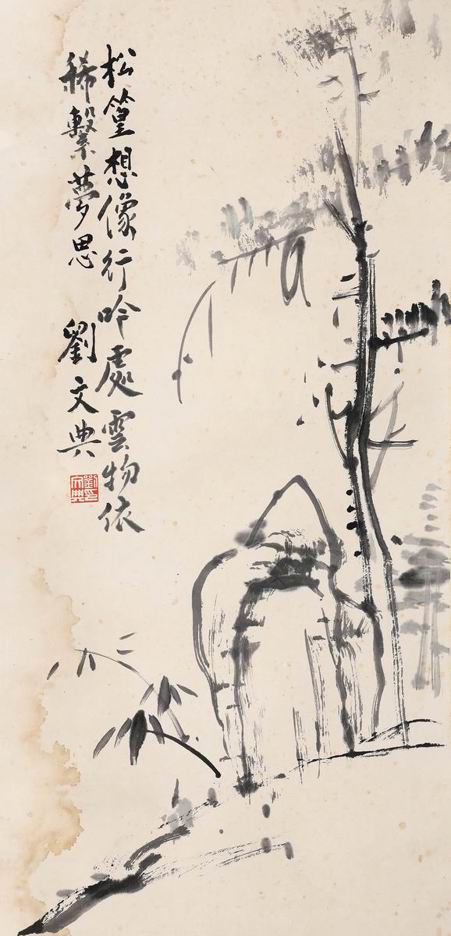 松篁想像行吟處雲物依
稀繫夢思
劉文典